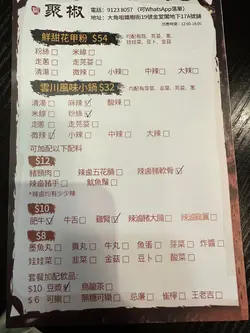 聚椒
電話：9123 8057 (可WhatsApp落單)
地址：大角咀鐵樹街19號金堂閣地下17A號舖
鮮甜花甲粉 $54
粉絲□ 米線□
走葱□ 走芫荽□
微辣□ 小辣□ 中辣□ 大辣□
雲川風味小鍋 $32
清湯□ 麻辣☑ 酸辣□
米線□ 粉絲☑
走葱□ 走芫荽□
微辣☑ 小辣□ 中辣□ 大辣□
可加配以下配料
$12
豬頸肉□ 辣鹵五花腩□ 辣鹵豬軟骨☑
辣鹵豬手□ 魷魚鬚□
*辣鹵均有少少辣
$10
肥牛☑ 牛舌□ 雞腎☑ 辣鹵豬大腸□
$8
墨魚丸□ 貢丸□ 牛丸□ 魚蛋□ 芽菜□ 炸醬□
娃娃菜□ 韭菜□ 金菇□ 豆卜□ 酸菜□
套餐加配飲品:
$10 豆漿☑ 烏龍茶□
$6 可樂□ 無糖可樂□ 忌廉□ 雀檸□ 王老吉□